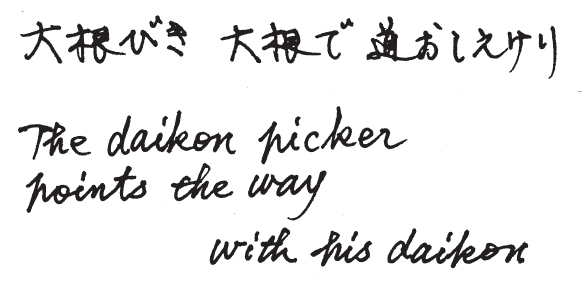 大根びき 大根で 道おしえけり
The daikon picker
points the way
with his daikon